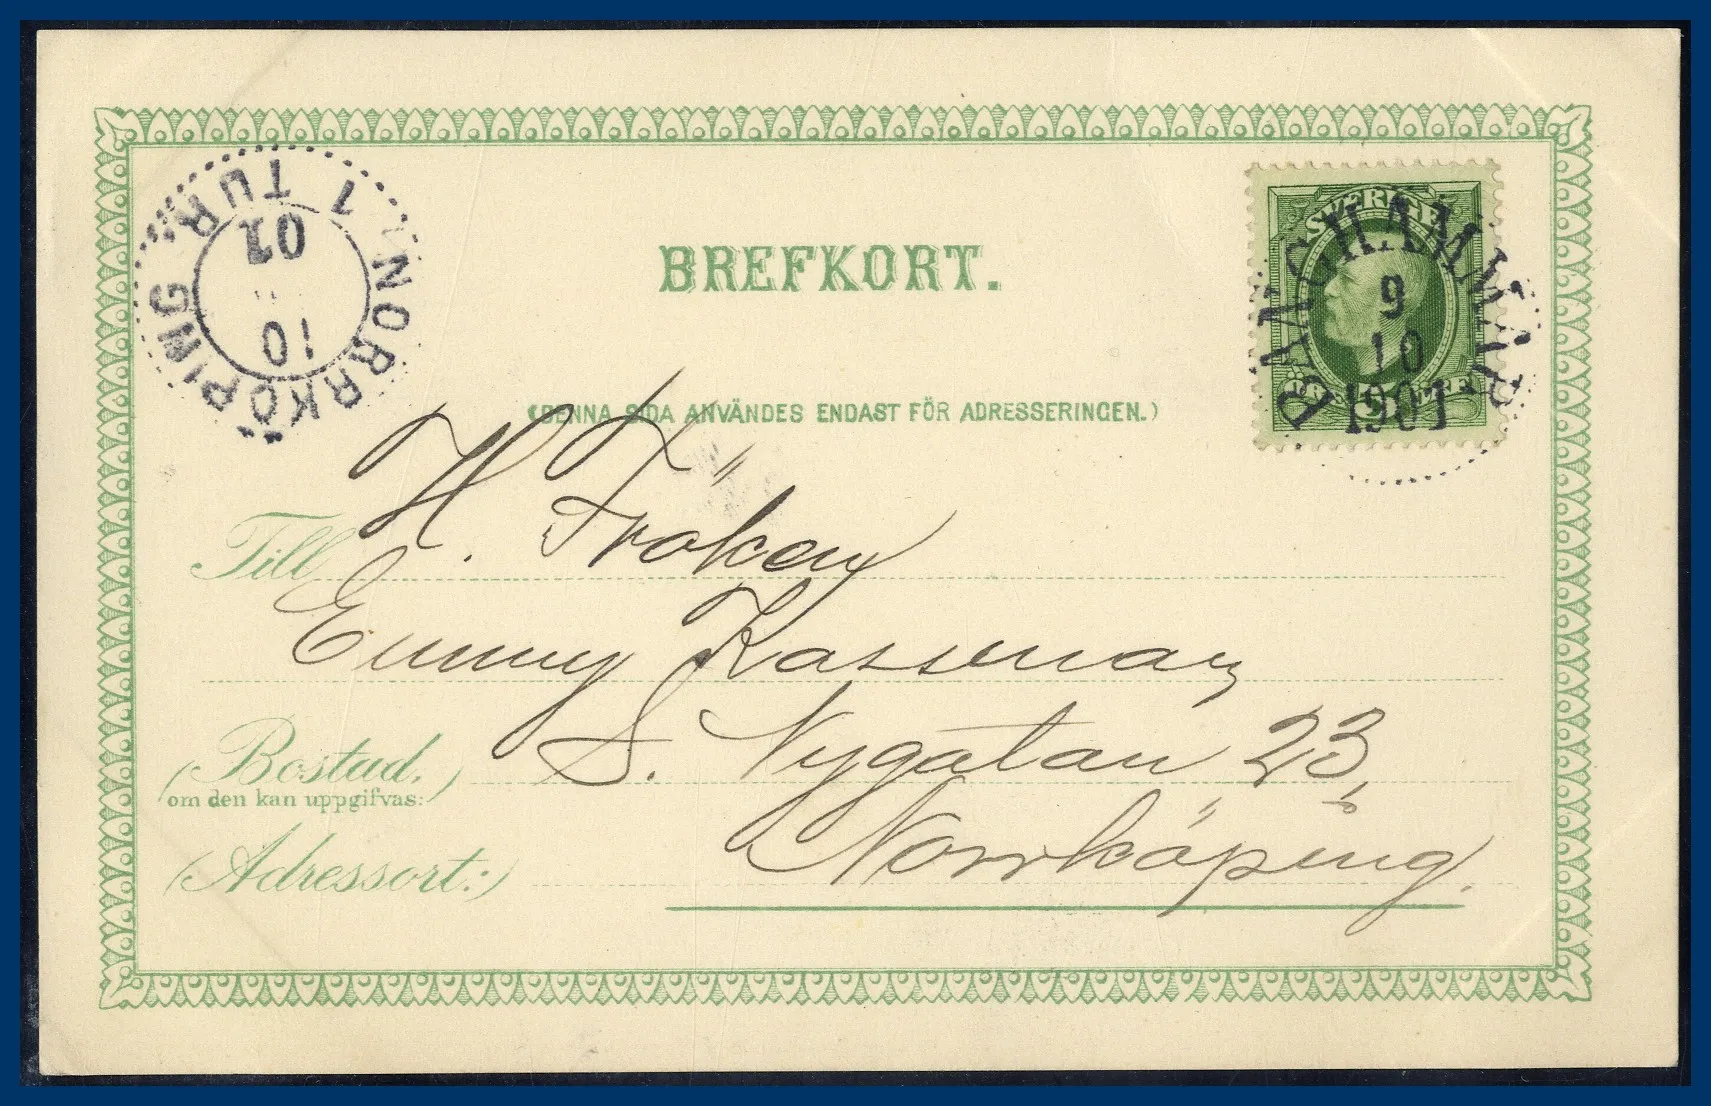 BREFKORT.
(DENNA SIDA ANVÄNDES ENDAST FÖR ADRESSERINGEN.)
SVERIGE
BÅNGHAMMAR
9
10
1901
NORRKÖPING
1 TUR
10
01
Till H. Fröken
Emmy Kassman
S. Nygatan 23,
(Bostad.)
om den kan uppgifvas:
(Adressort:) Norrköping.